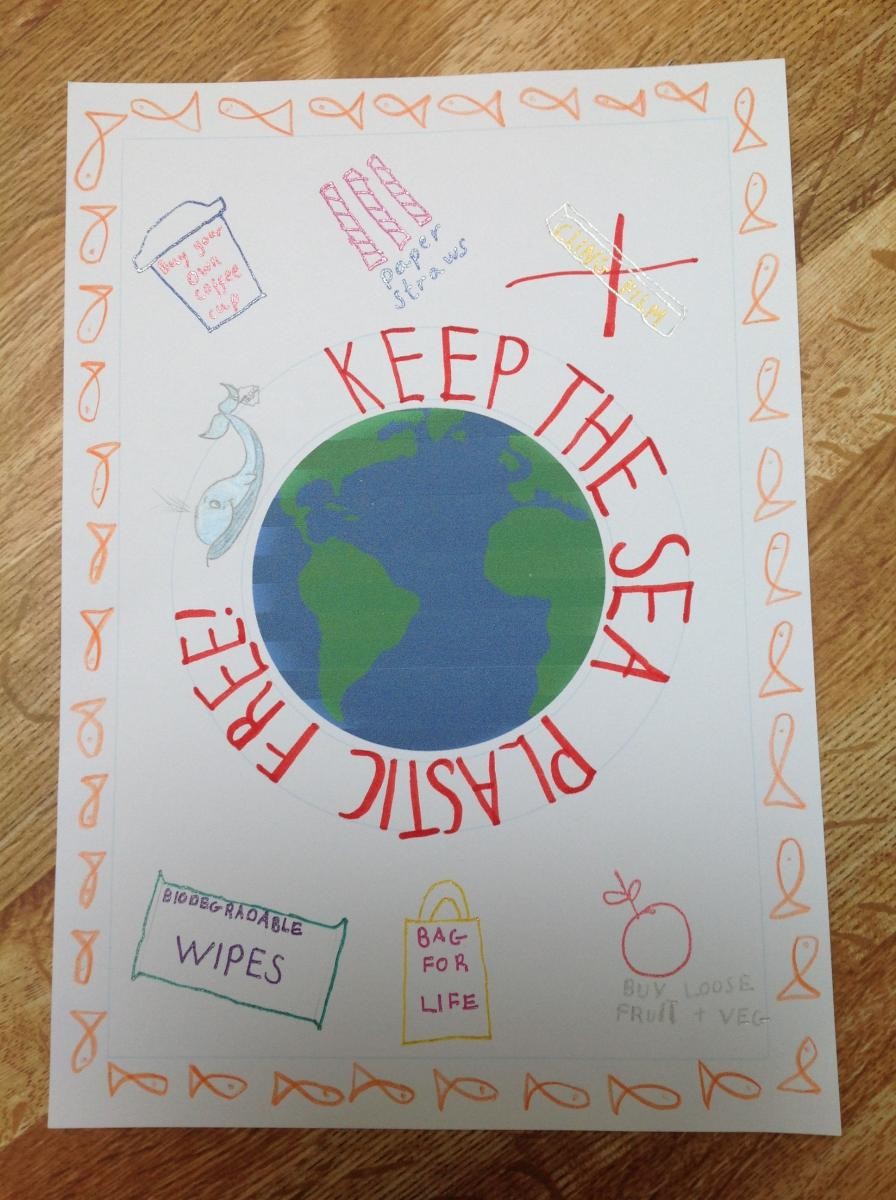 Buy your
own
coffee
cup
paper
straws
CLING FILM
KEEP THE SEA PLASTIC FREE!
BIODEGRADABLE
WIPES
BAG
FOR
LIFE
BUY LOOSE
FRUIT + VEG